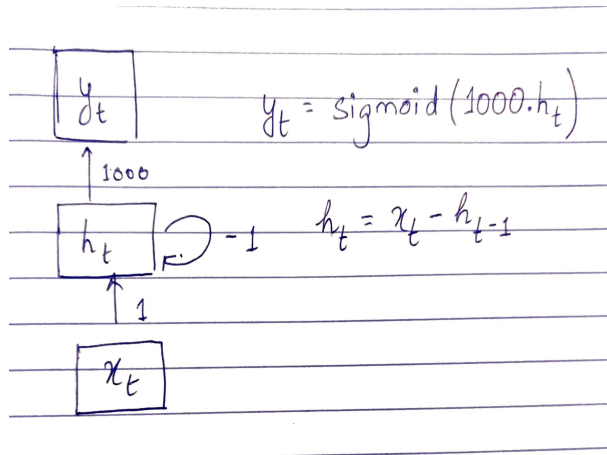 y_t
y_t = sigmoid(1000.h_t)
1000
h_t
-1
h_t = x_t - h_{t-1}
1
x_t